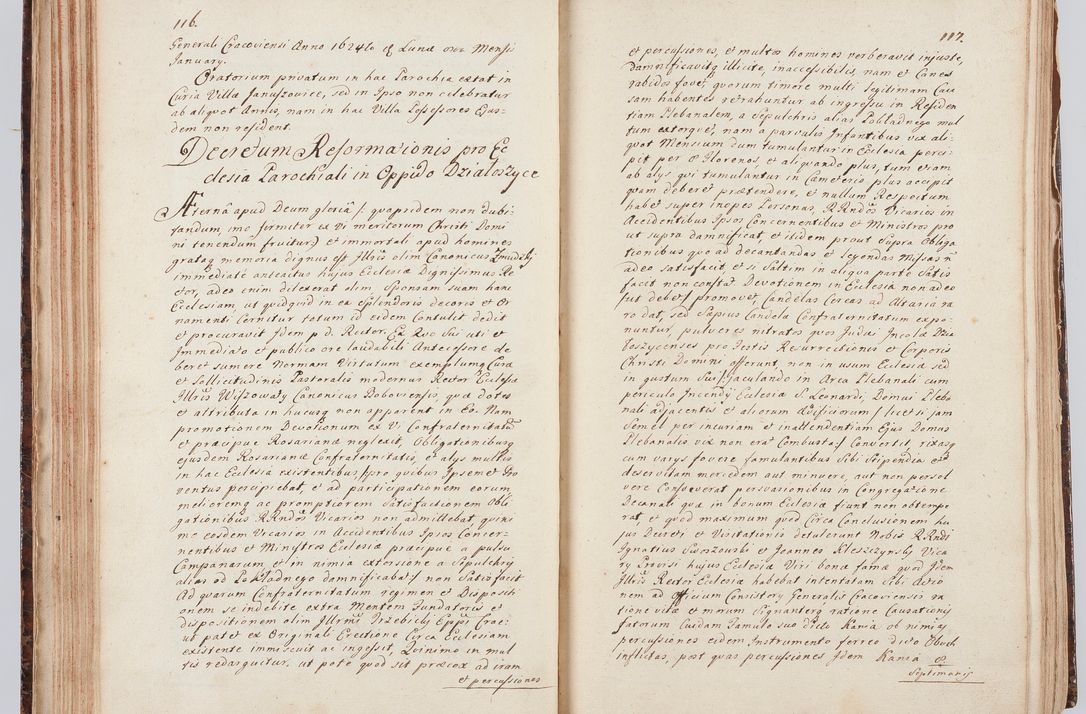 116.
Generali Cracoviensi Anno 1624to Lunæ Mensis
January.
Oratorium privatum in hac Parochia extat in
Curia Villa Januszovice, sed in Ipso non celebratur
ab aliquot Annis, nam in hac Villa Possessores Ejus-
dem non resident.
Decretum Reformationis pro Ec
clesia Parochiali in Oppido Dzialoszyce
Æternâ apud Deum gloriâ /: quapridem non dubi-
tandum, imo firmiter ex Vi meritorum Christi Domi
ni tenendum fruitur :/ et immortali apud homines
grataq memoria dignus est Illris olim Canonicus
immediatè anteactus hujus Ecclesiæ Dignissimus Re
ctor, adeo enim dilexerat olim, Sponsam suam hanc
Ecclesiam, ut quidquid in ea Splendoris decoris et Or
namenti Cernitur totum id eidem Contulit dedit
et procuravit Idem p. d. Rector. Ex Quo Suo uti et
Immediato et publico ore laudabili Antecessore de
beret sumere Normam Virtutum exemplumq Cura
et Sollicitudinis Pastoralis modernus Rector Ecclesiæ
Illris Canonicus Boboviensis, quæ dotes
et attributa in hucusq non apparent in Eo. Nam
promotionem Devotionum ex Vi Confraternitatu
et præcipue Rosarianæ neglexit, Obligationibusq
ejusdem Rosarianæ Confraternitatis, et alys multis
in hac Ecclesia existentibus /: pro quibus Ipsemet Pro
ventus percipiebat, et ad participationem eorum
meliorem ac promptiorem Satisfactionem Obli
gationibus RRndos Vicarios non admittebat, quini
mo eosdem Vicarios in Accidentibus Ipsos Concer-
nentibus et Ministros Ecclesiæ præcipue a pulsu
Campanarum et in nimia extorsione a Sepulchris
alias od Pokladnego damnificabat :/ non Satisfacit
Ad quarum Confraternitatum regimen et Dispositi
onem se indebite extra Mentem Fundatoris et
dispositionem olim Illrmi Trzebicky Eppi Crac:
ut patet ex Originali Erectione Circa Ecclesiam
existente immiscuit ac ingessit, Quinimo in mul
tis redarguitur, ut pote quod sit præcox ad iram
et percussiones
117.
et percussiones, et multos homines verberavit injuste,
damnificavitq illicite, inaccessibilis, nam et Canes
rabidos fovet, quorum timore multi legitimam Cau
sam habentes retrahuntur ab ingressu in Residen
tiam Plebanalem, a Sepulchris alias Pokladnego mul
tum extorquet, nam a parvulis Infantibus vix ali-
quot Mensium dum tumulantur in Ecclesia perci-
pit per 8 Florenos, et aliquando plus, tum etiam
ab alys qui tumulantur in Cæmeterio plus accipit
quam deberet prætendere, et nullum Respectum
habet super inopes Personas, RRndos Vicarios in
Accidentibus Ipsos Concernentibus et Ministros pro
ut supra damnificat, et itidem prout Supra Obliga
tionibus quo ad decantandas et legendas Missas n
adeo satisfacit, et si Saltim in aliqua parte Satis
facit non constat Devotionem in Ecclesia non adeo
sut debet promovet, Candelas Cereas ad Altaria ra
ro dat, sed Sæpius Candela Confraternitatum expo-
nuntur, pulveres nitratos quos Judæi Incola Dzia
loszycenses pro Festis Resurrectionis et Corporis
Christi Domini offerunt, non in usum Ecclesiæ sed
in gustum Sui /: jaculando in Area Plebanali cum
periculo Incendy Ecclesiæ S. Leonardi, Domui Pleba
nali adjacentis et aliorum ædificiorum / licet si jam
Semel per incuriam et inattendentiam Ejus Domus
Plebanalis vix non erat Combusta :/ Convertit, rixasq
cum varys fovere famulantibus Sibi Stipendia et
deservitam mercedem aut minuere, aut non persol
vere Consveverat persvasionibus in Congregatione
Decanali quæ in bonum Ecclesiæ fiunt non obtempe
rat, et quod maximum quod Circa Conclusionem hu
jus Decreti et Visitationis detulerunt Nobis RRndi
Ignatius et Joannes Kleszczynsky Vica
ry Provisi hujus Ecclesiæ Viri bonæ famæ quod Idem
Illris Rector Ecclesiæ habebat intentatam Sibi Actio
nem ad Officium Consistory Generalis Cracoviensis ra
tione vitæ et morum Signanterq ratione Causationis
fatorum Cuidam Famulo suo dicto Kania ob nimias
percussiones eidem Instrumento ferreo dicto Obuch
inflictas, post quas percussiones Idem Kania
Septimanis